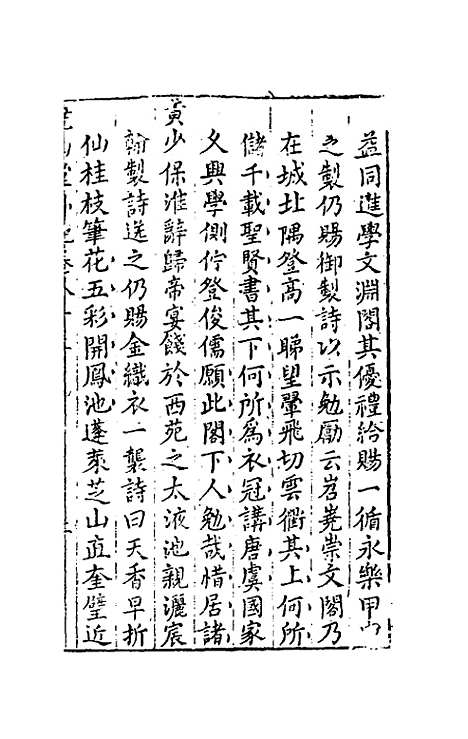 益同進學文淵閣其優禮給賜一循永樂甲
之製仍賜御製詩以示勉勵云岧嶤崇文閣乃
在城北隅登高一睇望翬飛切雲衢其上何所
儲千載聖賢書其下何所爲衣冠講唐虞國家
久興學側佇登俊儒願此閣下人勉哉惜居諸
黄少保淮辭歸帝宴餞於西苑之太液池親灑宸
翰製詩送之仍賜金織衣一襲詩曰天香早折
仙桂枝筆花五彩開鳳池蓬萊芝山直奎璧近
堯山堂外紀卷八十